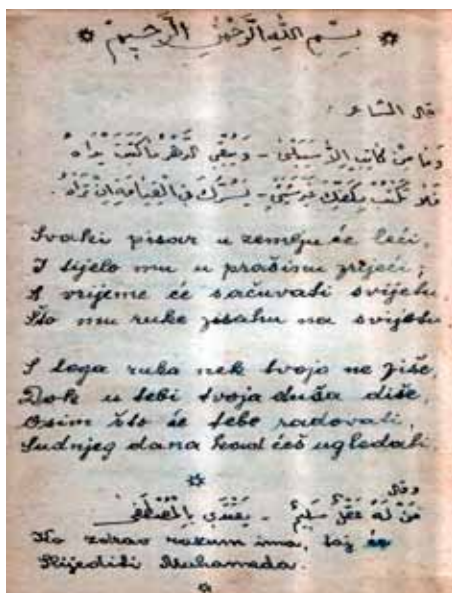 بِسْمِ اللهِ الرَّحْمٰنِ الرَّحِيمِ
قال الشاعر :
وَمَا مِنْ كَاتِبٍ إِلَّا سَيَبْلَى - وَيُبْقِي الدَّهْرُ مَا كَتَبَتْ يَدَاهُ
فَلَا تَكْتُبْ بِكَفِّكَ غَيْرَ شَيْءٍ - يَسُرُّكَ فِي الْقِيَامَةِ أَنْ تَرَاهُ.
Svaki pisar u zemlju će leći,
I tijelo mu u prašinu prijeći,
A vrijeme će sačuvati svijetu,
Što mu ruke pisahu na svijetu.
S toga ruka nek tvoja ne piše,
Dok u tebi tvoja duša diše,
Osim što će tebe radovati,
Sudnjeg dana kead ćeš ugledati.
وقال
مَنْ لَهُ عَقْلٌ سَلِيمٌ - يَقْتَدِي بِالْمُصْطَفَى
Ko zdrav razum ima, taj će
Slijediti Muhameda.